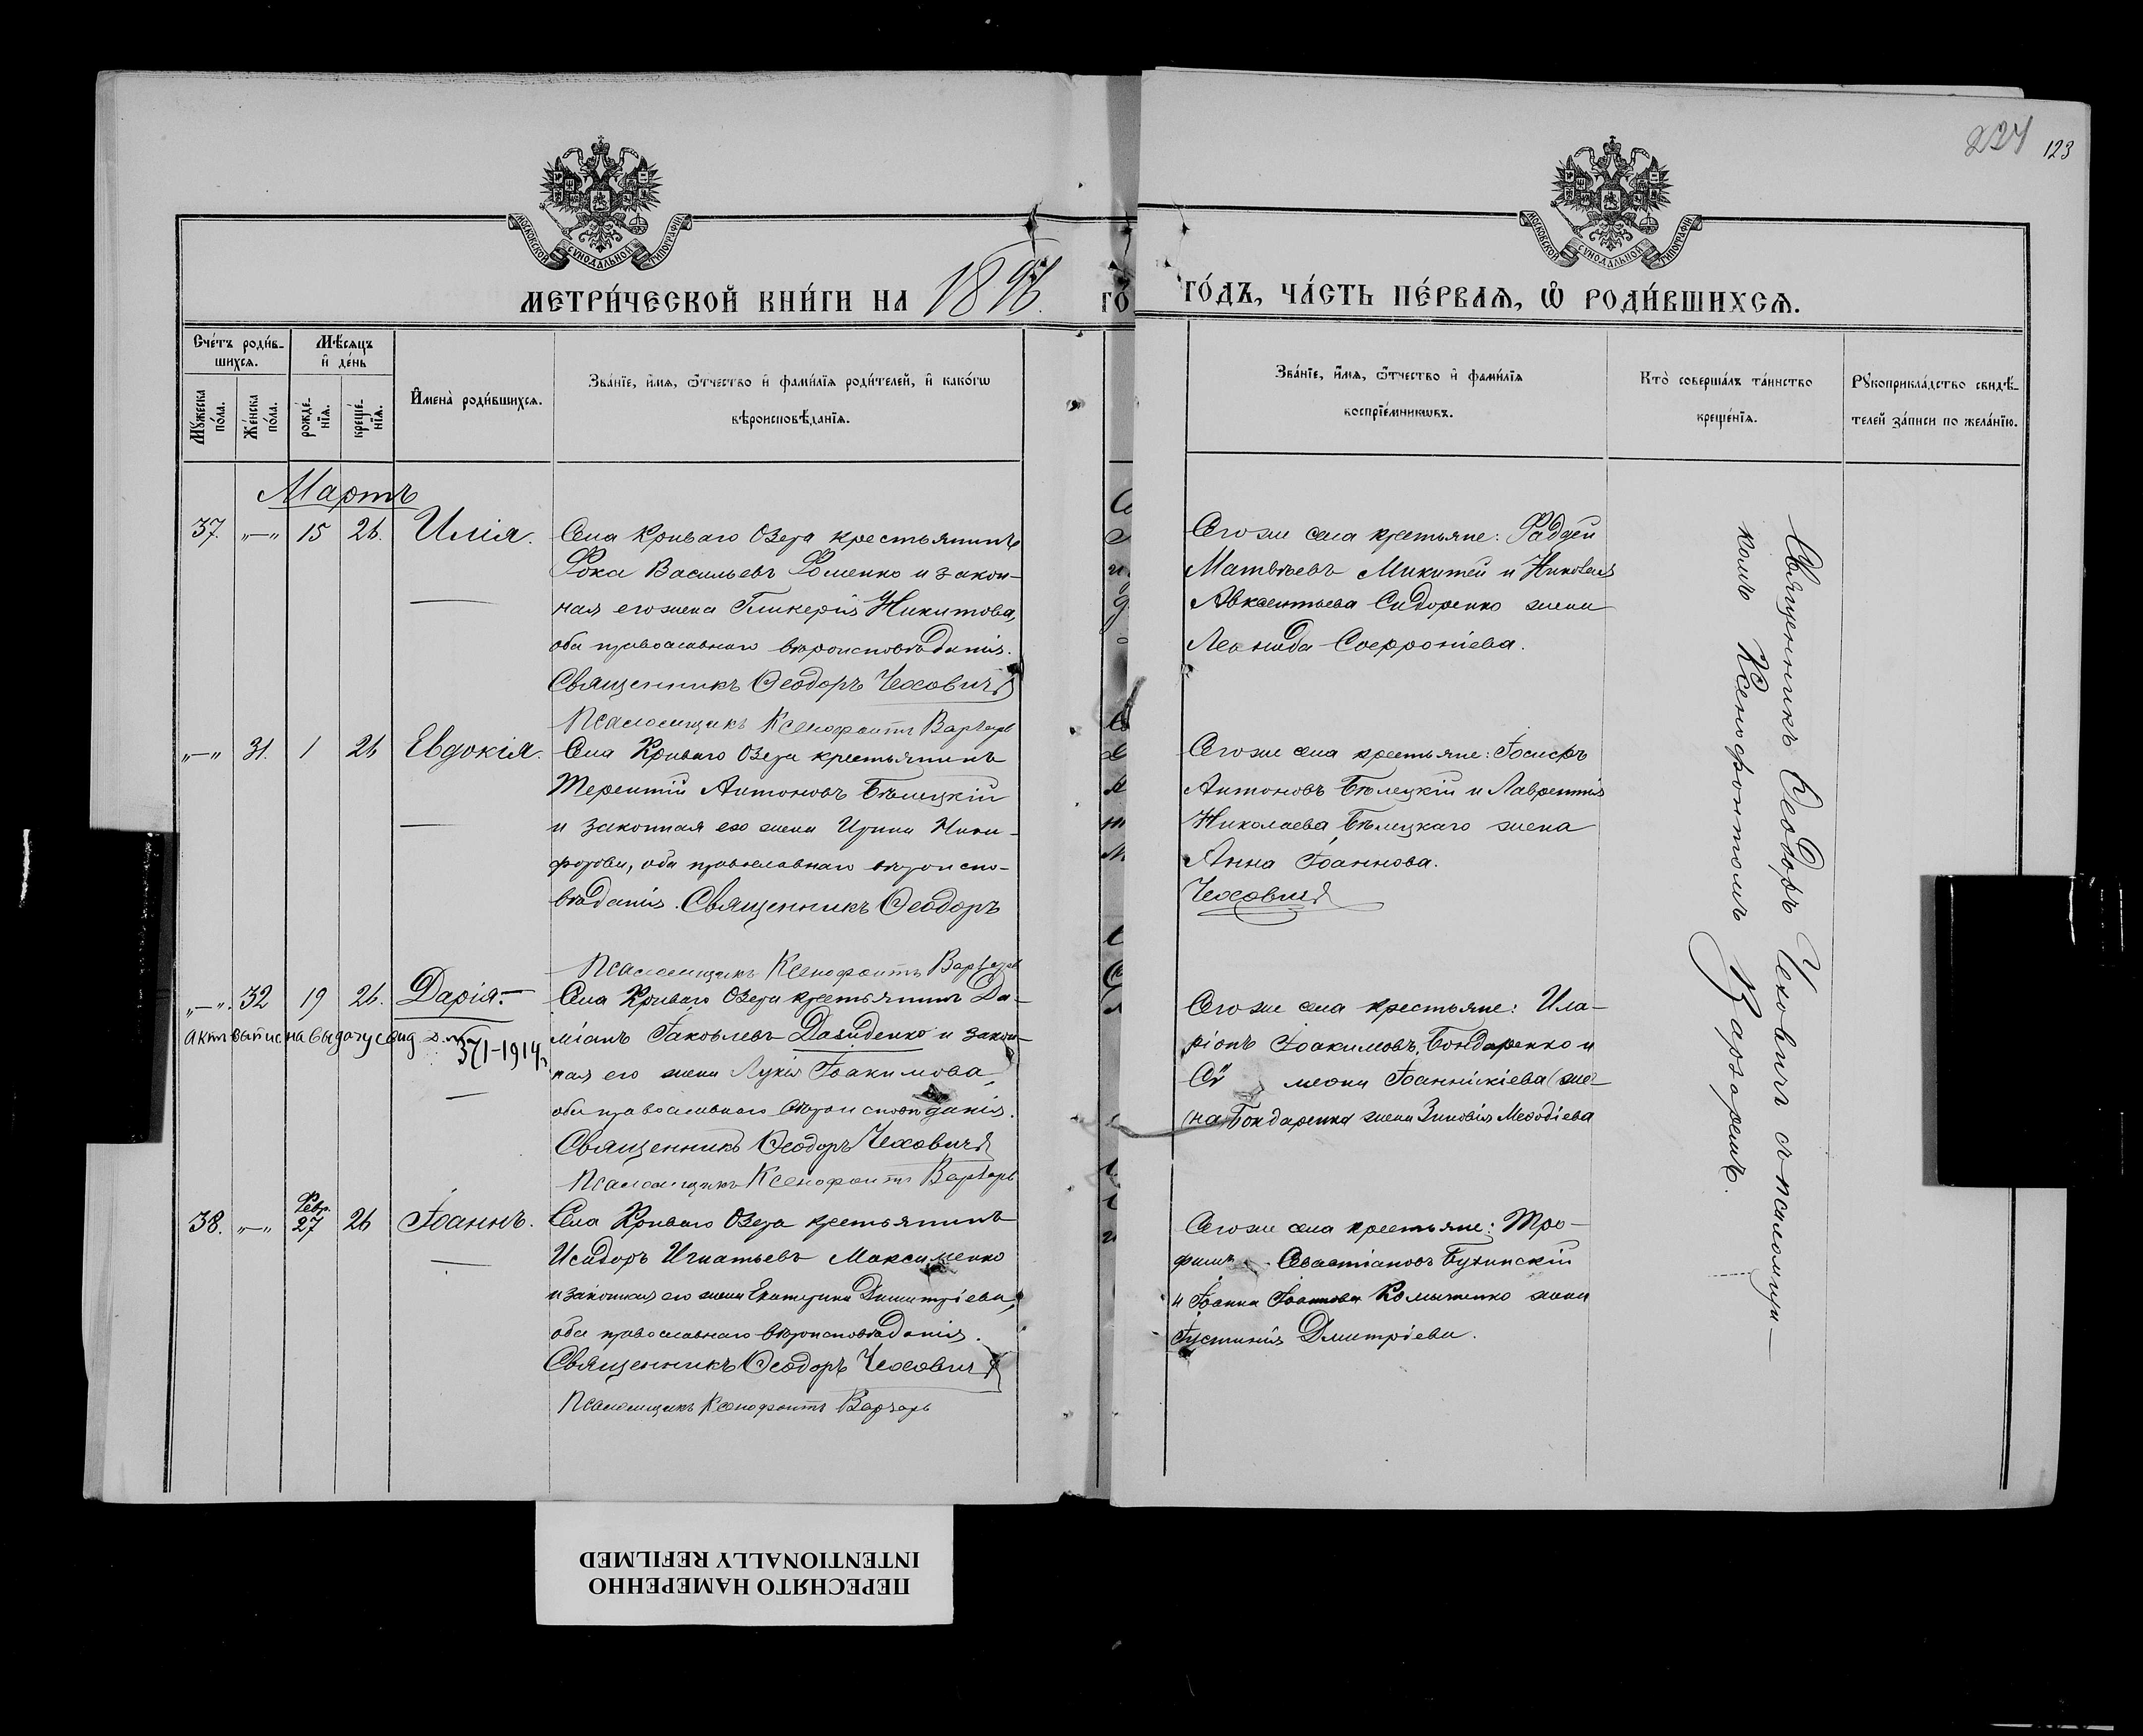 224 123
МОСКОВСКОЙ СѴНОДАЛЬНОЙ ТИПОГРАФІИ
МОСКОВСКОЙ СѴНОДАЛЬНОЙ ТИПОГРАФІИ
МЕТРИ́ЧЕСКОЙ КНИ́ГИ НА 1896 ГО́ДЪ, ЧА́СТЬ ПЕ́РВАѦ, Ѽ РОДИ́ВШИХСѦ.
Сче́тъ роди́в-
шихсѧ.
Мꙋ́жеска по́ла.
Же́нска по́ла.
Мѣ́сяцъ и҆ де́нь
рожде́-
нїѧ.
креще́-
нїѧ.
И҆мена̀ роди́вшихсѧ.
Зва́нїе, и҆́мѧ, ѻ҆́тчество и҆ фами́лїѧ роди́телей, и҆ како́гѡ
вѣроисповѣ́данїѧ.
Зва́нїе, и҆́мѧ, ѻ҆́тчество и҆ фами́лїѧ
воспрїе́мникѡвъ.
Кто̀ соверша́лъ та́инство
креще́нїѧ.
Рꙋкоприкла́дство свидѣ́-
телей за́писи по жела́нїю.
Мартъ
37. „—„ 15 26. Илія.
Села Криваго Озера крестьянинъ
Фока Васильевъ Фоменко и закон-
ная его жена Гликерія Никитова,
оба православнаго вѣроисповѣданія.
Священникъ Ѳеодоръ Чеховичъ
Псаломщикъ Ксенофонтъ Варзарь
Тогоже села крестьяне: Фаддей
Матвѣевъ Микитей и Николая
Авксентьева Сидоренко жена
Леонида Софроніева.
„—„ 31. 1 26 Евдокія.
Села Криваго Озера крестьянинъ
Терентій Антоновъ Бѣлецкій
и законная его жена Ирина Ники-
форова, оба православнаго вѣроиспо-
вѣданія. Священникъ Ѳеодоръ
Псаломщикъ Ксенофонтъ Варзарь
Тогоже села крестьяне: Іосифъ
Антоновъ Бѣлецкій и Лаврентія
Николаева Бѣлецкаго жена
Анна Іоаннова.
Чеховичъ
„—„. 32 19 26. Дарія.—
Актъ выпис на выдачу свид
371-1914
Села Криваго Озера крестьянинъ Да-
міанъ Іаковлевъ Давиденко и закон-
ная его жена Лукія Іоакимова,
оба православнаго вѣроисповѣданія.
Священникъ Ѳеодоръ Чеховичъ
Псаломщикъ Ксенофонтъ Варзарь
Тогоже села крестьяне: Ила-
ріонъ Іоакимовъ Бондаренко и
Іоанникіева (же-
на) Бондаренка жена Зиновія Меѳодіева
38. „—„ Февр. 27 26 Іоаннъ.
Села Криваго Озера крестьянинъ
Исидоръ Игнатьевъ Максименко
и законная его жена Екатерина Димитріева,
оба православнаго вѣроисповѣданія.
Священникъ Ѳеодоръ Чеховичъ
Псаломщикъ Ксенофонтъ Варзарь
Тогоже села крестьяне: Тро-
фимъ Севастіановъ Бухинскій
и Іоанна Іоаннова жена
Іустинія Дмитріева.
Священникъ Ѳеодоръ Чеховичъ съ псаломщи-
комъ Ксенофонтомъ Варзаремъ.
ПЕРЕСНЯТО НАМЕРЕННО
INTENTIONALLY REFILMED